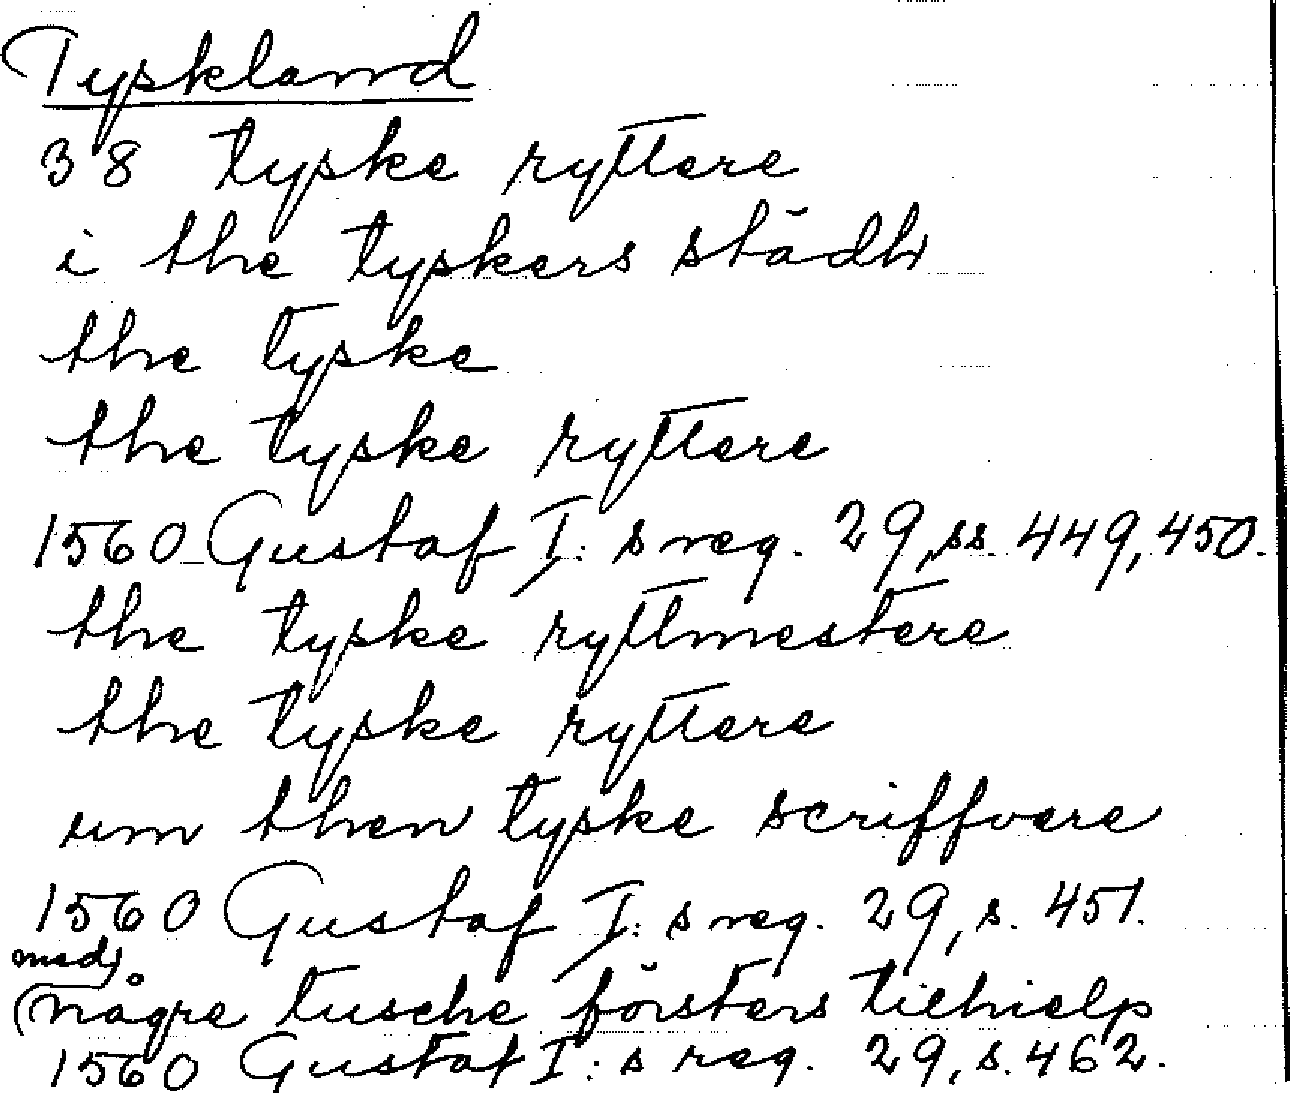 Tyskland
38 tyske ryttere
i the tyskers städh
the tyske
the tyske ryttere
1560 Gustaf I: s reg. 29, ss. 449, 450.
the tyske rytlmestere
the tyske ryttere
um then tyske scriffvere
1560 Gustaf I: s reg. 29, s. 451.
(med)
någre tusche försters tilhielp
1560 Gustaf I: s reg. 29, s. 462.